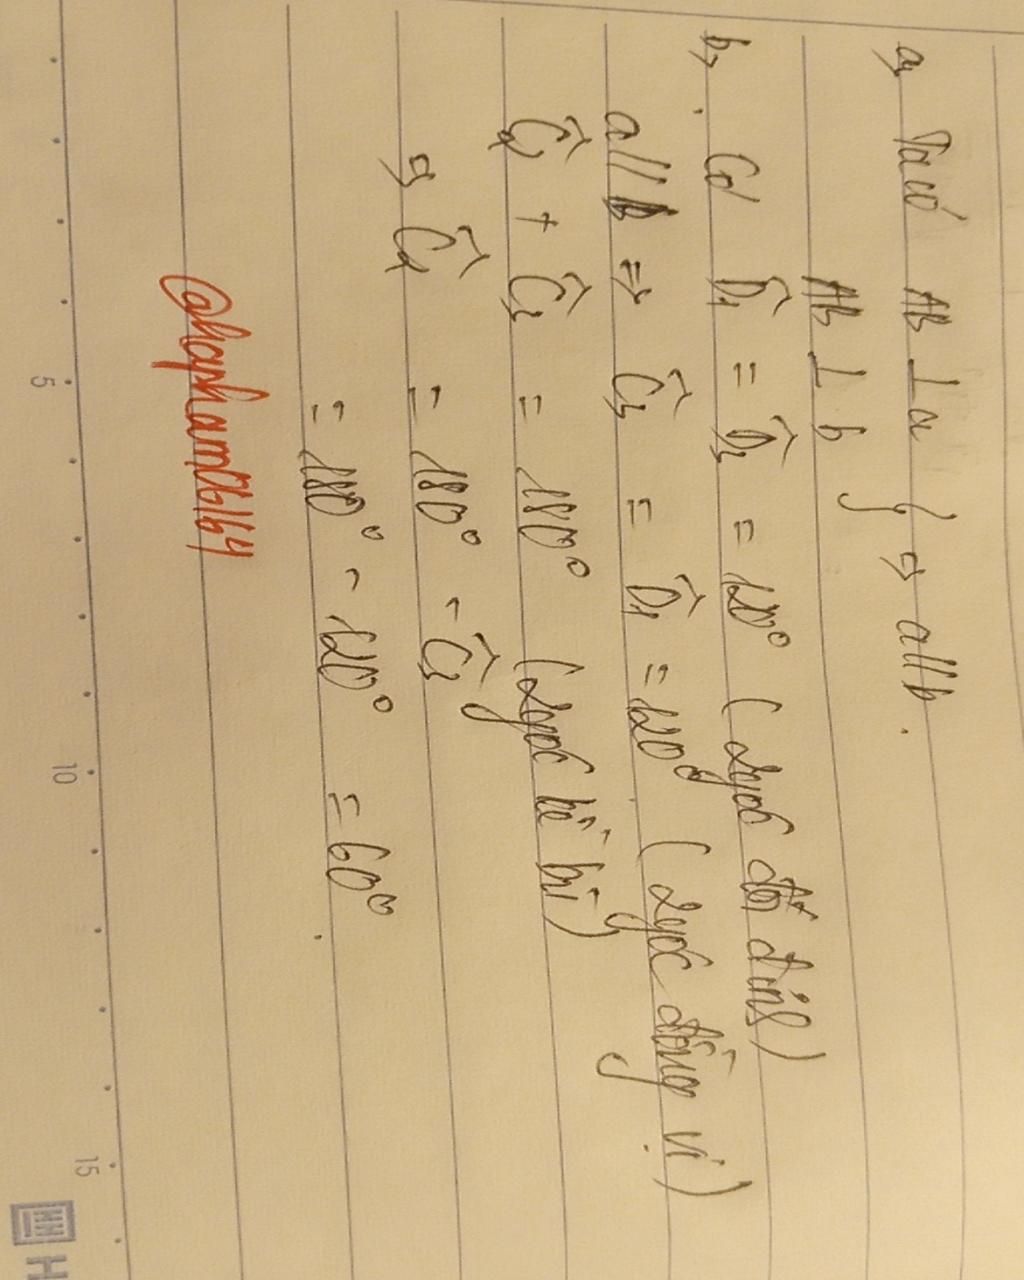 a, Ta có AB ⊥ a } => a//b.
AB ⊥ b
b, Có D̂₁ = D̂₃ = 120° (2góc đối đỉnh)
a//b => Ĉ₃ = D̂₁ = 120° (2góc đồng vị)
Ĉ₂ + Ĉ₃ = 180° (2góc kề bù)
=> Ĉ₂ = 180° - Ĉ₃
= 180° - 120° = 60°
@hapham06164
5 10 15
H